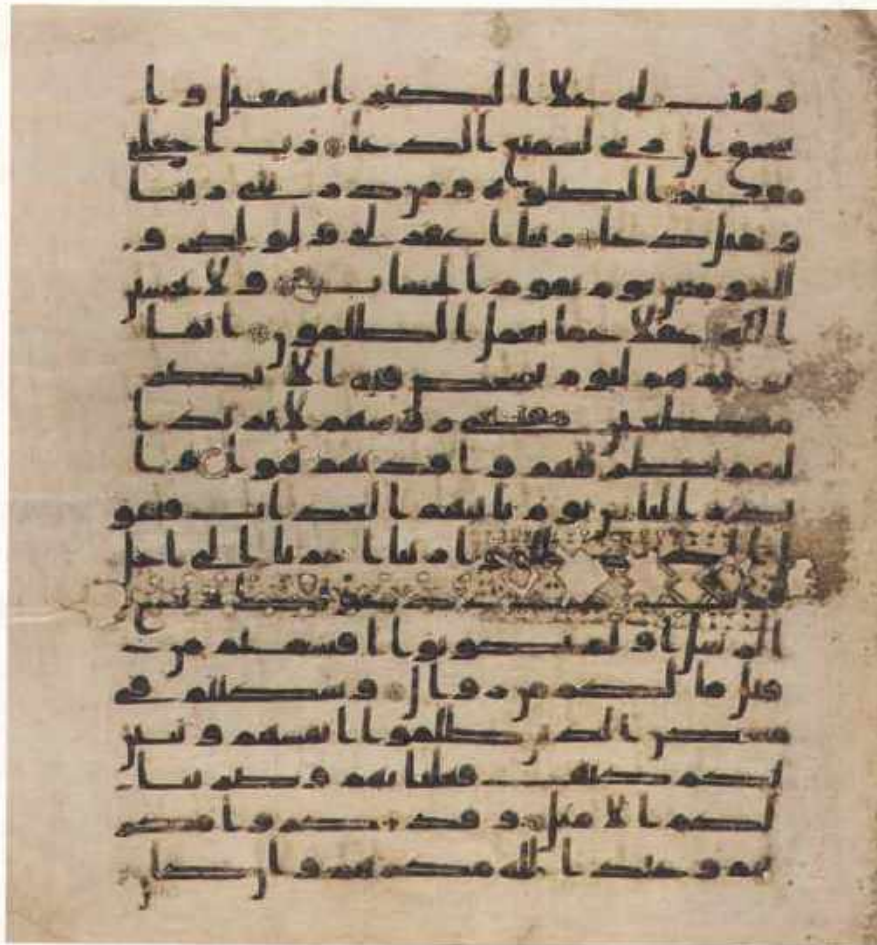 وهب لى على الكبر اسمعيل وا
سحق ان ربى لسميع الدعا رب اجعلنى
مقيم الصلوة ومن ذريتى ربنا
وتقبل دعا ربنا اغفر لى ولولدى و
للمومنين يوم يقوم الحساب ولا تحسبن
الله غفلا عما يعمل الظلمون انما
يوخرهم ليوم تشخص فيه الابصر
مهطعين مقنعى روسهم لا يرتد ا
ليهم طرفهم وافدتهم هوا وا
نذر الناس يوم ياتيهم العذاب فيقو
ل الذين ظلموا ربنا اخرنا الى اجل
قريب نجب دعوتك ونتبع
الرسل او لم تكونوا اقسمتم من
قبل ما لكم من زوال وسكنتم فى
مسكن الذين ظلموا انفسهم وتبين
لكم كيف فعلنا بهم وضربنا
لكم الامثل وقد مكروا مكر
هم وعند الله مكرهم وان كان